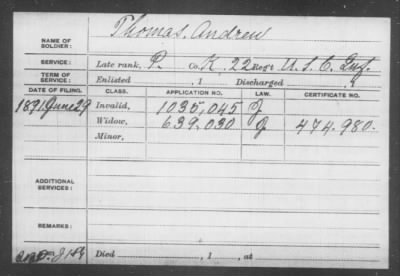 NAME OF SOLDIER: Thomas, Andrew
SERVICE: Late rank, P. Co. K, 22 Reg't U.S.C. Inf.
TERM OF SERVICE: Enlisted , 1 Discharged , 1
DATE OF FILING. CLASS. APPLICATION NO. LAW. CERTIFICATE NO.
1891 June 29 Invalid, 1035,045
Widow, 639,030 474.980.
Minor,
ADDITIONAL SERVICES:
REMARKS:
Died , 1 , at